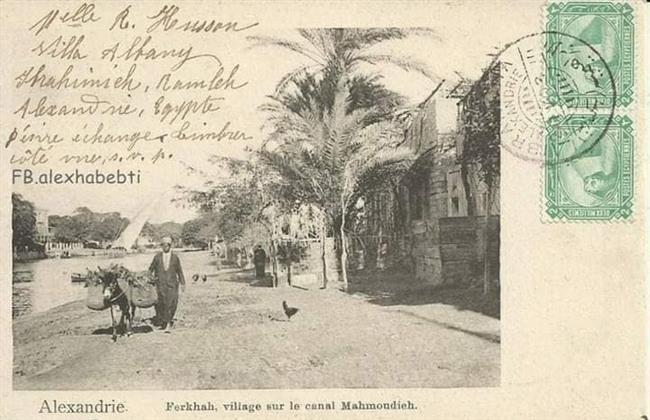 Melle R. Husson
Villa Albany
Ibrahimieh, Ramleh
Alexandrie, Egypte
échange
côté vue, s.v.p.
FB.alexhabebti
ALEXANDRIE
POSTES EGYPTIENNES
Alexandrie.
Ferkhah, village sur le canal Mahmoudieh.